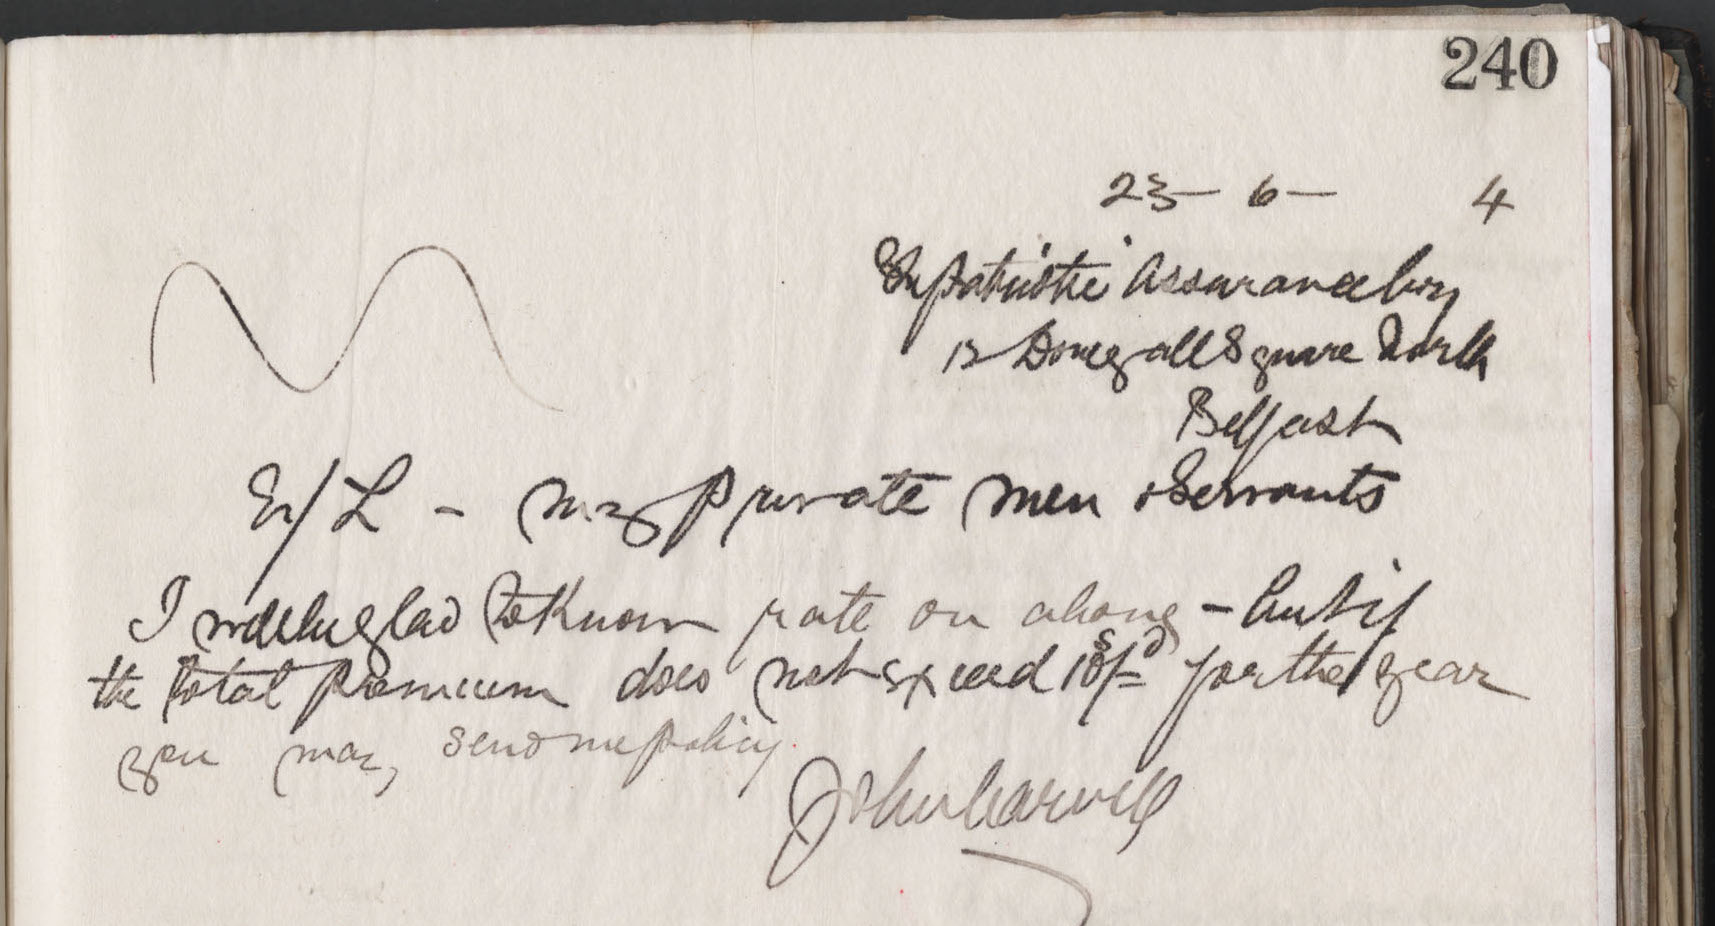 240
23 - 6 - 4
The Patriotic Assurance Coy
13 Donegall Square North
Belfast
E/L - my private men & Servants
I wd be glad to know rate on above - but if
the total Premium does not exceed 10s/=d for the year
you may send me policy.
John Carvill